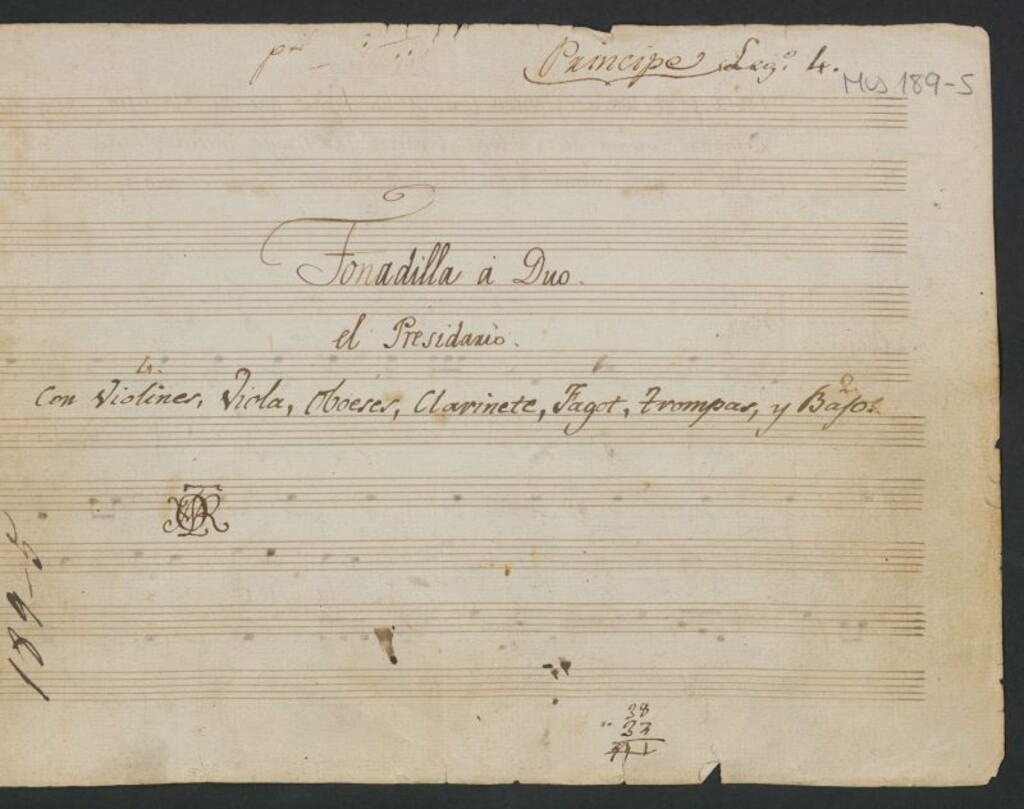 Principe Leg.º 4.
Mus 189-5
Tonadilla a Duo.
el Presidario.
4.
2.
Con Violines, Viola, Oboeses, Clarinete, Fagot, Trompas, y Bajo.
189-5
38